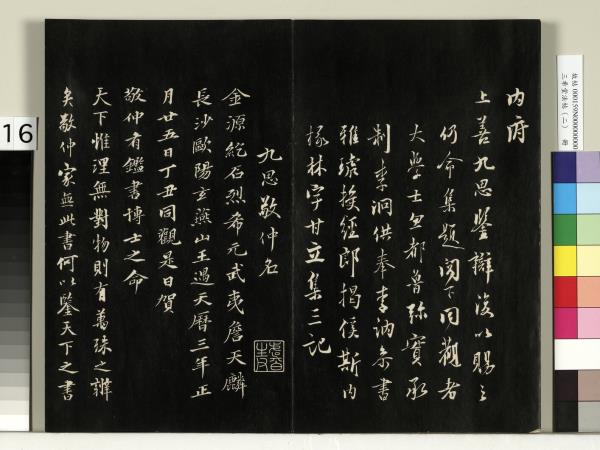 內府
上善九思鑒辯復以賜之
仍命集題閣下同觀者
大學士忽都魯弥實承
制李泂供奉李訥參書
雅琥授經郎揭傒斯內
掾林宇甘立集三記
九思敬仲名
金源紇石烈希元武夷詹天麟
長沙歐陽玄燕山王遇天曆三年正
月廿五日丁丑同觀是日賀
敬仲有鑑書博士之命
天下惟理無對物則有萬殊之辨
矣敬仲家無此書何以鑒天下之書
故帖 000159N000000000
三希堂法帖(二) 冊
16